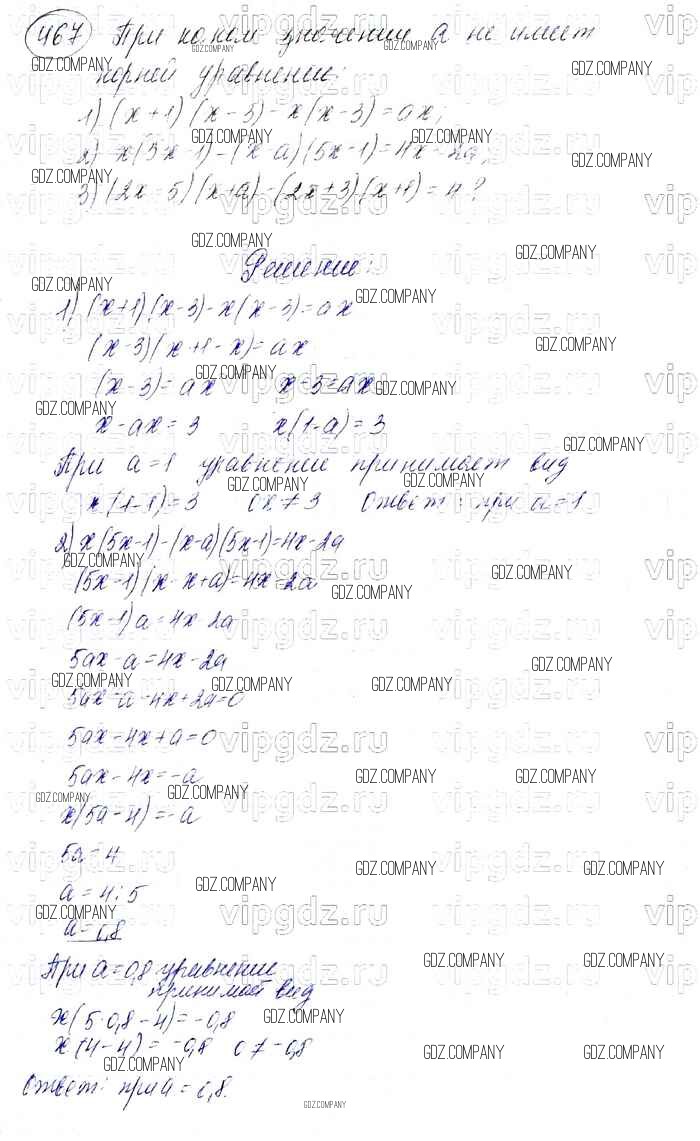 467 При каком значении а не имеет
корней уравнение:
1) (x+1)(x-3)-x(x-3)=ax;
2) x(5x-1)-(x-a)(5x-1)=4x-2a;
3) (2x-5)(x+a)-(2x+3)(x+1)=4?
Решение:
1) (x+1)(x-3)-x(x-3)=ax
(x-3)(x+1-x)=ax
(x-3)=ax x-3=ax
x-ax=3 x(1-a)=3
При a=1 уравнение принимает вид
x(1-1)=3 0x≠3 Ответ: при a=1
2) x(5x-1)-(x-a)(5x-1)=4x-2a
(5x-1)(x-x+a)=4x-2a
(5x-1)a=4x-2a
5ax-a=4x-2a
5ax-a-4x+2a=0
5ax-4x+a=0
5ax-4x=-a
x(5a-4)=-a
5a=4
a=4:5
a=0,8
При a=0,8 уравнение
принимает вид
x(5·0,8-4)=-0,8
x(4-4)=-0,8 0≠-0,8
Ответ: при a=0,8.
GDZ.COMPANY
vipgdz.ru